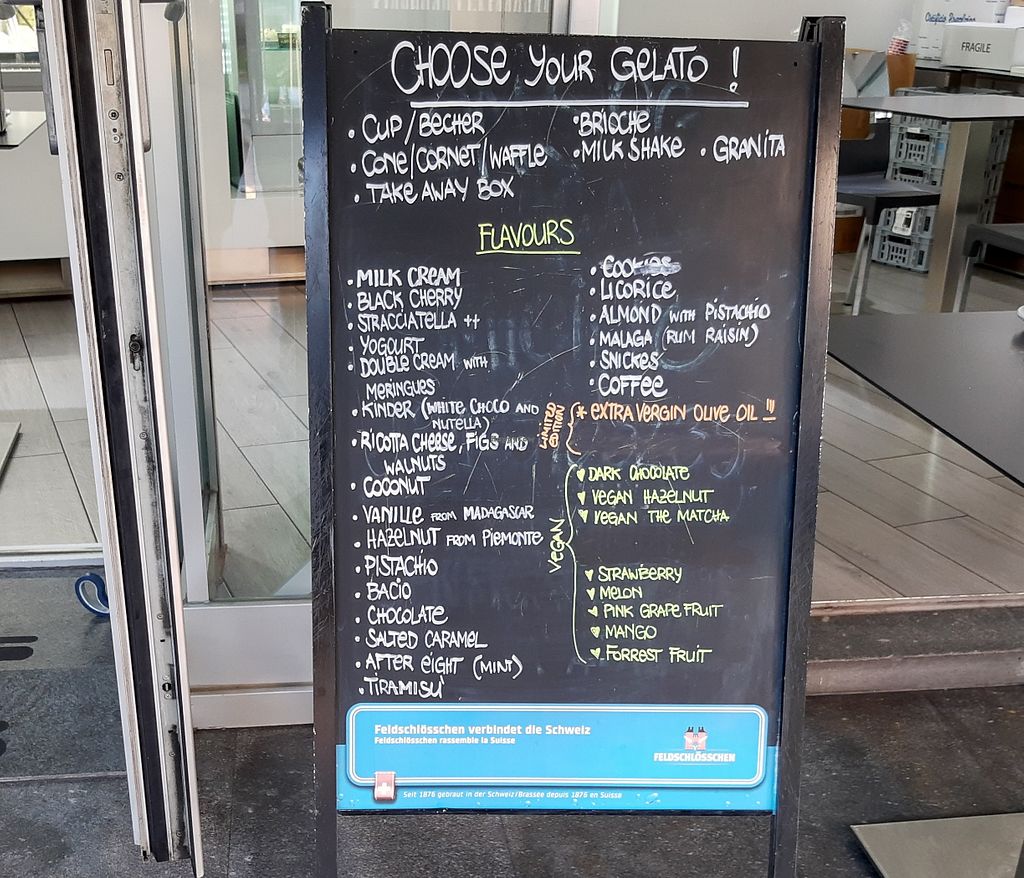 CHOOSE YOUR GELATO !
• CUP / BECHER
• CONE/CORNET/WAFFLE
• TAKE AWAY BOX
• BRIOCHE
• MILK SHAKE • GRANITA
FLAVOURS
• MILK CREAM
• BLACK CHERRY
• STRACCIATELLA ++
• YOGOURT
• DOUBLE CREAM WITH
MERINGUES
• KINDER (WHITE CHOCO AND
NUTELLA)
• RICOTTA CHEESE, FIGS AND
WALNUTS
• COCONUT
• VANILLE FROM MADAGASCAR
• HAZELNUT FROM PIEMONTE
• PISTACHIO
• BACIO
• CHOCOLATE
• SALTED CARAMEL
• AFTER EIGHT (MINT)
• TIRAMISU'
• COOKIES
• LICORICE
• ALMOND WITH PISTACHIO
• MALAGA (RUM RAISIN)
• SNICKES
• COFFEE
LIMITED
EDITION
* EXTRA VERGIN OLIVE OIL !!!
VEGAN
♥ DARK CHOCOLATE
♥ VEGAN HAZELNUT
♥ VEGAN THE MATCHA
♥ STRAWBERRY
♥ MELON
♥ PINK GRAPEFRUIT
♥ MANGO
♥ FORREST FRUIT
Feldschlösschen verbindet die Schweiz
Feldschlösschen rassemble la Suisse
FELDSCHLÖSSCHEN
Seit 1876 gebraut in der Schweiz/Brassée depuis 1876 en Suisse
FRAGILE